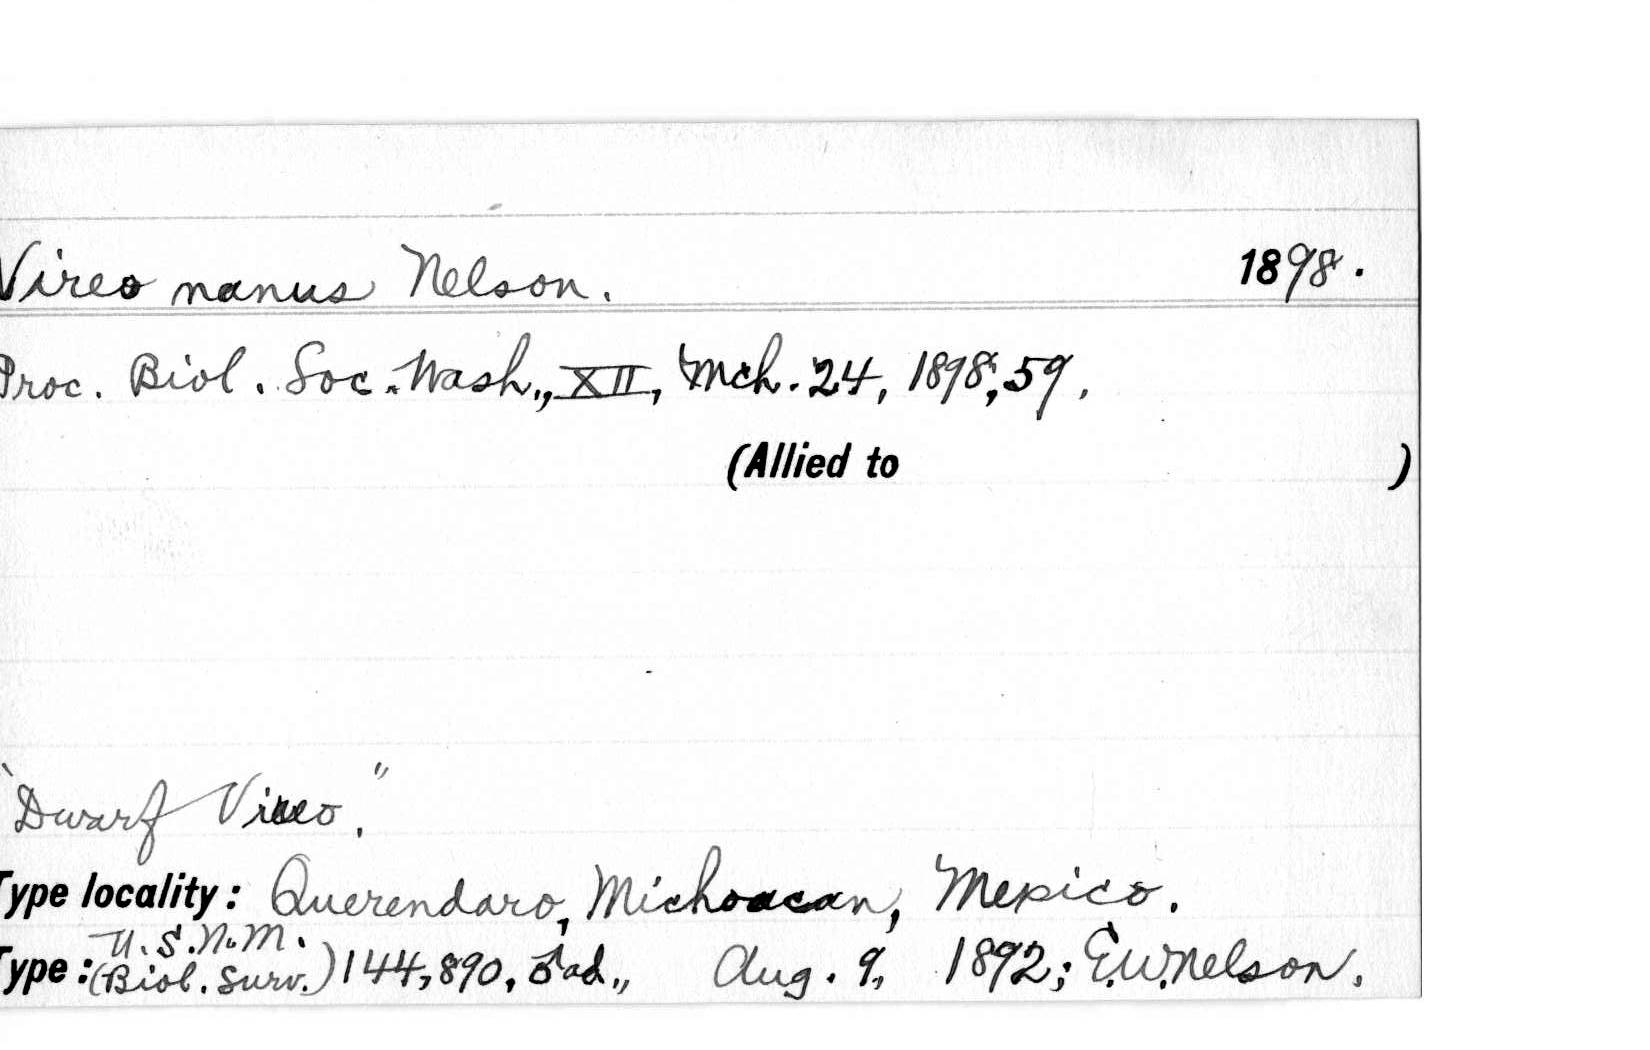 Vireo nanus Nelson. 1898.
Proc. Biol. Soc. Wash., XII, Mch. 24, 1898, 59.
(Allied to )
"Dwarf Vireo."
Type locality: Querendaro, Michoacan, Mexico.
U.S.N.M.
Type: (Biol. Surv.) 144,890, ♂ ad., Aug. 9, 1892; E.W. Nelson.